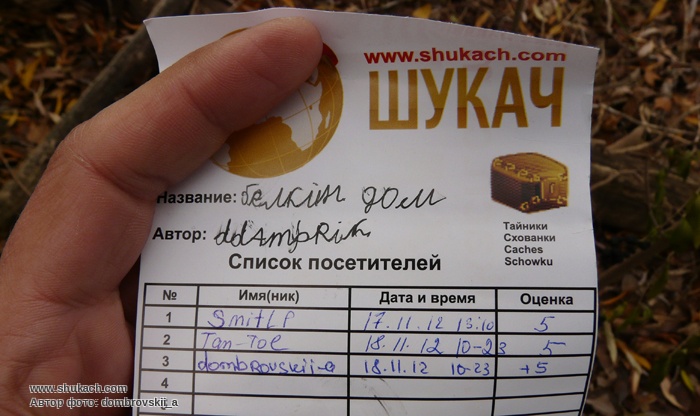 www.shukach.com
ШУКАЧ
Название: белкін дом
Автор:
Тайники
Схованки
Caches
Schowku
Список посетителей
№ Имя(ник) Дата и время Оценка
1 SmitLP 17.11.12 13:10 5
2 Tan-Tol 18.11.12 10-23 5
3 dombrovskii-a 18.11.12 10-23 +5
4
www.shukach.com
Автор фото: dombrovskij_a